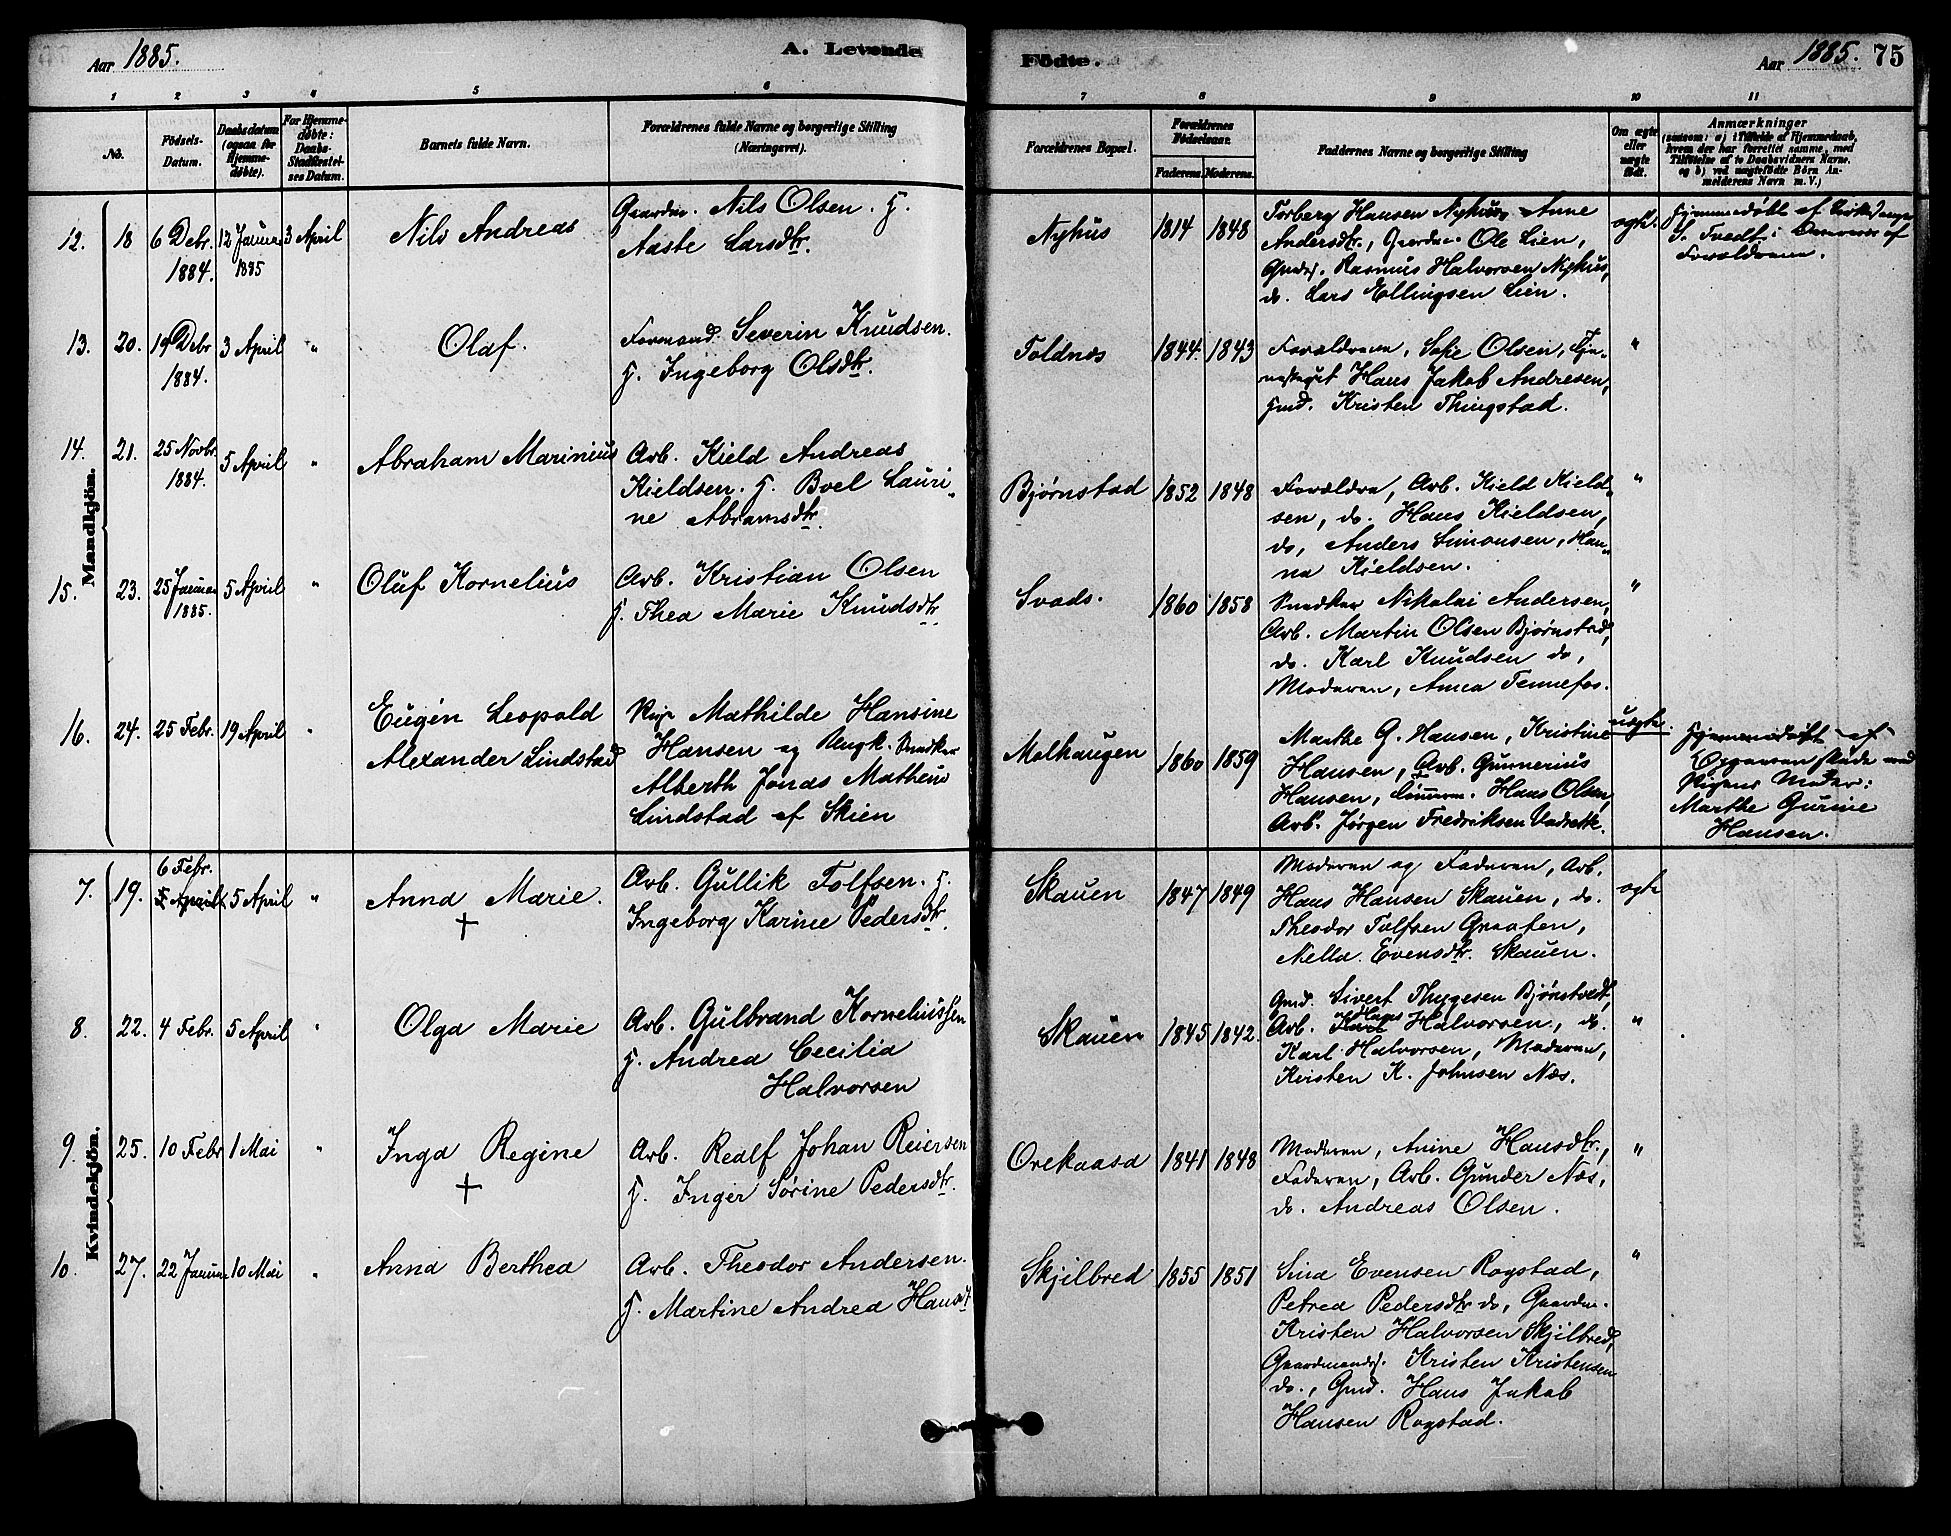 Aar 1885.
A. Levende
Födte.
Aar 1885.
75
1 2 3 4 5 6 7 8 9 10 11
No.
Födsels-
Datum.
Daabsdatum
(ogsaa for
Hjemme-
døbte).
For Hjemme-
døbte:
Daabs-
Stadfæstel-
ses Datum.
Barnets fulde Navn.
Forældrenes fulde Navne og borgerlige Stilling
(Næringsvei).
Forældrenes Bopæl.
Forældrenes
Födselsaar.
Faderens. Moderens.
Faddernes Navne og borgerlige Stilling
Om ægte
eller
uægte
födt.
Anmærkninger
(saasom: a) i Tilfælde af Hjemmedaab,
hvem der har forrettet samme, med
Tilföielse af to Daabsvidners Navne.
og b) ved uægtefödte Börn An-
melderens Navn m. V.)
Mandkjön.
12. 18 6 Debr. 12 Januar 3 April
1884. 1885
Nils Andreas
Gaardm. Nils Olsen. H.
Aaste Larsdtr.
Nyhus 1814 1848
Torberg Hansen Nyhus, Anne
Andersdtr., Gaardm. Ole Lien,
Gmds. Rasmus Halvorsen Nyhus,
do. Lars Ellingsen Lien.
ægte.
Hjemmedøbt af Kirkesanger
S. Tvedt i Overvær af
Forældrene.
13. 20. 19 Debr 3 April "
1884.
Olaf.
Formand. Severin Knudsen.
H. Ingeborg Olsdtr.
Toldnæs 1844 1843
Forældrene, Sofie Olsen, Tje-
nestegut Hans Jakob Andresen,
Gmd. Kristen Thingstad.
"
14. 21. 25 Novbr. 5 April "
1884.
Abraham Marinius
Arb. Kield Andreas
Kieldsen. H. Boel Lauri-
ne Abramsdtr.
Bjørnstad 1852 1848
Forældre, Arb. Kield Kield-
sen, do. Hans Kieldsen,
do, Anders Simonsen, Han-
na Kieldsen.
"
15. 23. 25 Januar 5 April "
1885.
Oluf Kornelius
Arb. Kristian Olsen
H. Thea Marie Knudsdtr.
Svads. 1860 1858
Snedker Nikolai Andersen,
Arb. Martin Olsen Bjørnstad,
do. Karl Knudsen do,
Moderen, Anna Tennefos.
"
16. 24. 25 Febr. 19 April "
Eugén Leopold
Alexander Lindstad
Pige Mathilde Hansine
Hansen og Ungk. Snedker
Alberth Jonas Matheus
Lindstad af Skien
Malhaugen 1860 1859
Marthe G. Hansen, Kristine
Hansen, Arb. Gunnerius
Hansen, Tømmerm. Hans Olsen,
Arb. Jørgen Fredriksen Vadrette.
uægte.
Hjemmedøbt af
Opgaven skede ved
Pigens Moder:
Marthe Gurine
Hansen.
Kvindekjön.
7. 19. 6 Febr. 5 April 5 April "
Anna Marie.
+
Arb. Gullik Tolfsen. H.
Ingeborg Karine Pedersdtr.
Skauen 1847 1849
Moderen og Faderen, Arb.
Hans Hansen Skauen, do.
Theodor Tolfsen Graaten,
Nella Evensdtr. Skauen.
ægte
8. 22. 4 Febr. 5 April "
Olga Marie
Arb. Gulbrand Korneliussen
H. Andrea Cecilia
Halvorsen
Skauen 1845 1842.
Gmd. Sivert Thygesen Bjørnstvedt,
Arb. Karl Hans Halvorsen, do.
Karl Halvorsen, Moderen,
Kristen K. Johnsen Næs.
"
9. 25. 10 Febr 1 Mai "
Inga Regine
+
Arb. Realf Johan Reiersen
H. Inger Sørine Pedersdtr.
Orekaasa 1841 1848
Moderen, Anine Hansdtr.,
Faderen, Arb. Gunder Næs,
do. Andreas Olsen.
"
10. 27. 22 Januar 10 Mai "
Anna Berthea
Arb. Theodor Andersen.
H. Martine Andrea Hansdt
Skjilbred 1855 1851
Sina Evensen Rogstad,
Petrea Pedersdtr do, Gaardm.
Kristen Halvorsen Skjilbred,
Gaardmands. Kristen Kristensen
do., Gmd. Hans Jakob
Hansen Rogstad.
"